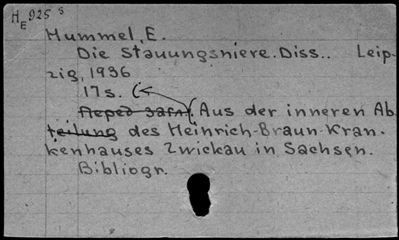 HE 925 s
Hummel, E.
Die Stauungsniere. Diss.. Leip-
zig, 1936
17 s. (
Перед загл. (Aus der inneren Ab-
teilung des Heinrich-Braun-Kran-
kenhauses Zwickau in Sachsen.
Bibliogr.